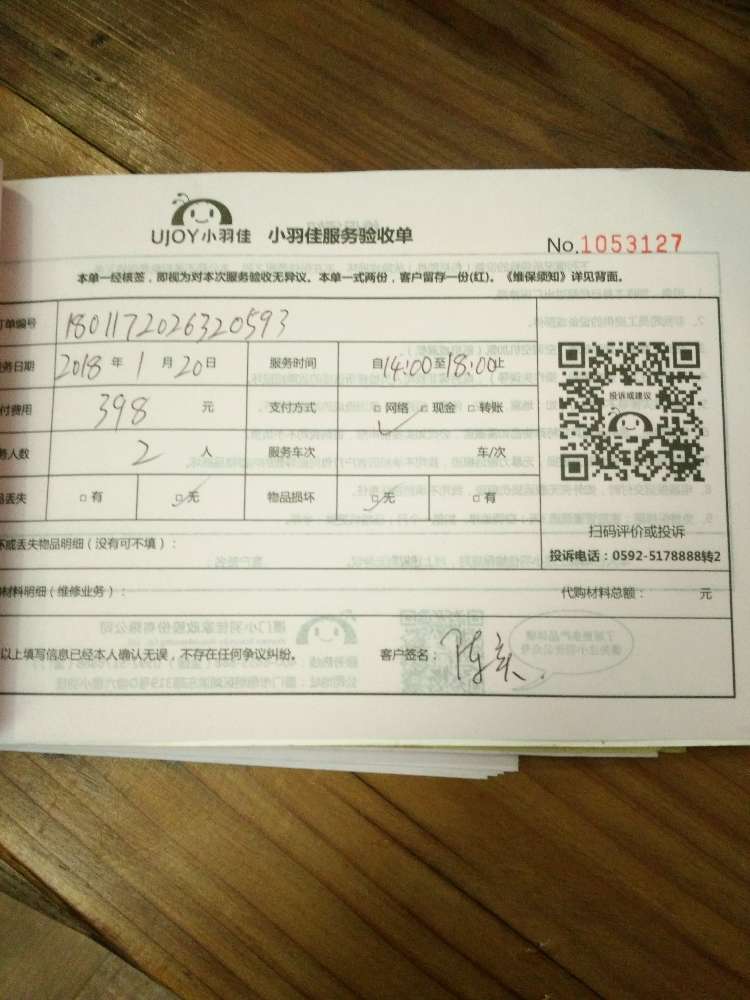 UJOY小羽佳 小羽佳服务验收单
No.1053127
本单一经核签，即视为对本次服务验收无异议。本单一式两份，客户留存一份(红)。《维保须知》详见背面。
单编号 1801172026320593
务日期 2018 年 1 月 20 日 服务时间 自14:00至18:00止
付费用 398 元 支付方式 □ 网络 □ 现金 □ 转账
务人数 2 人 服务车次 车/次
品丢失 □ 有 □ 无 物品损坏 □ 无 □ 有
投诉或建议
扫码评价或投诉
投诉电话：0592-5178888转2
坏或丢失物品明细（没有可不填）：
材料明细（维修业务）： 代购材料总额： 元
以上填写信息已经本人确认无误，不存在任何争议纠纷。 客户签名：陈